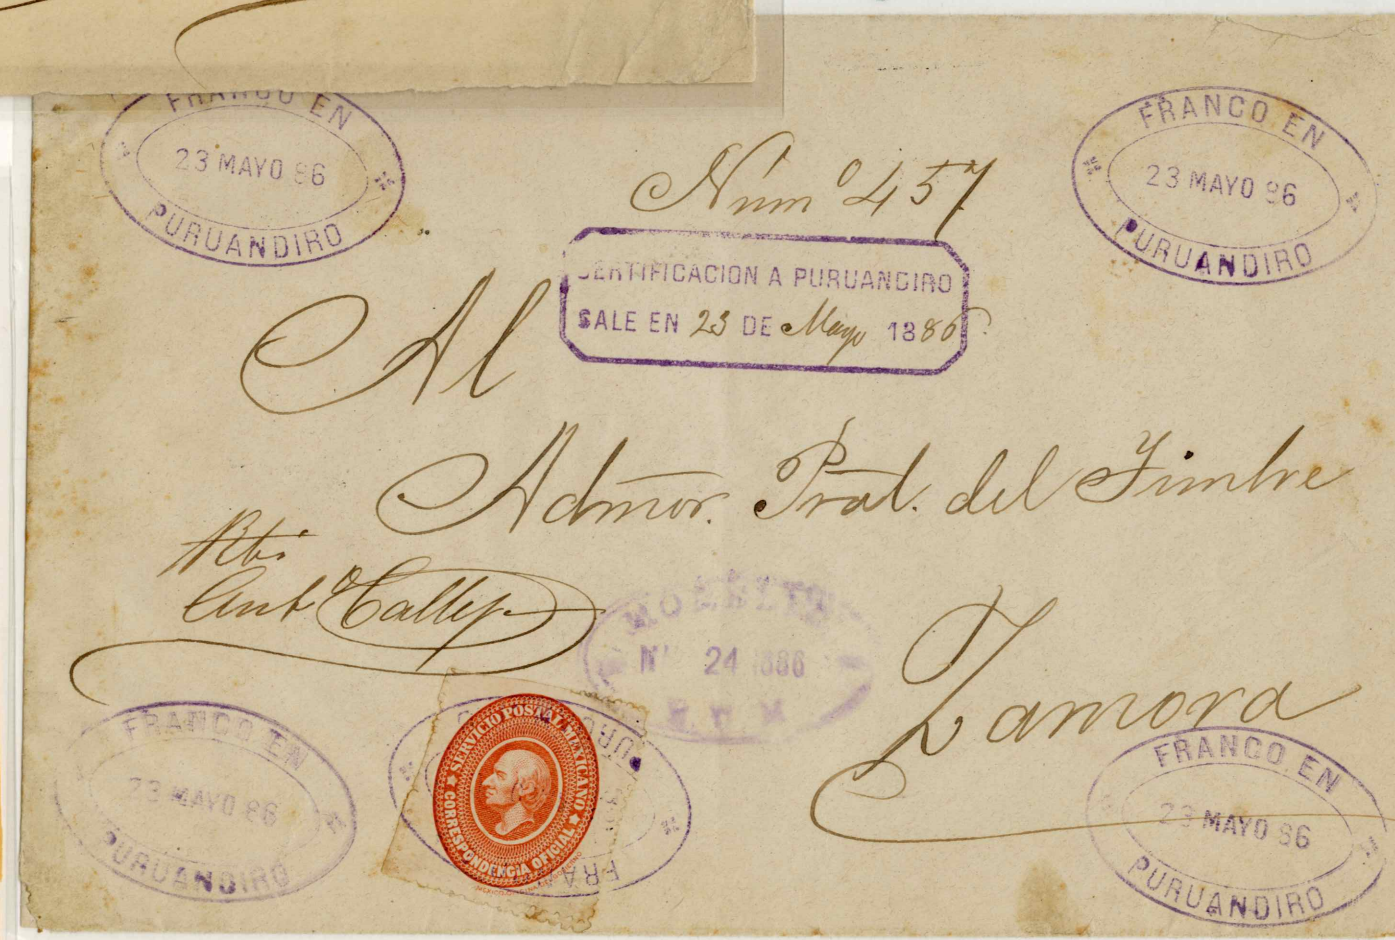 FRANCO EN
23 MAYO 86
PURUANDIRO
FRANCO EN
23 MAYO 86
PURUANDIRO
Núm° 457
CERTIFICACION A PURUANDIRO
SALE EN 23 DE Mayo 1886
Al
Admor. Pral. del Timbre
Ant° Calleja
MORELIA
24 1886
Zamora
FRANCO EN
23 MAYO 86
PURUANDIRO
SERVICIO POSTAL MEXICANO
CORRESPONDENCIA OFICIAL
FRA
FRANCO EN
23 MAYO 86
PURUANDIRO